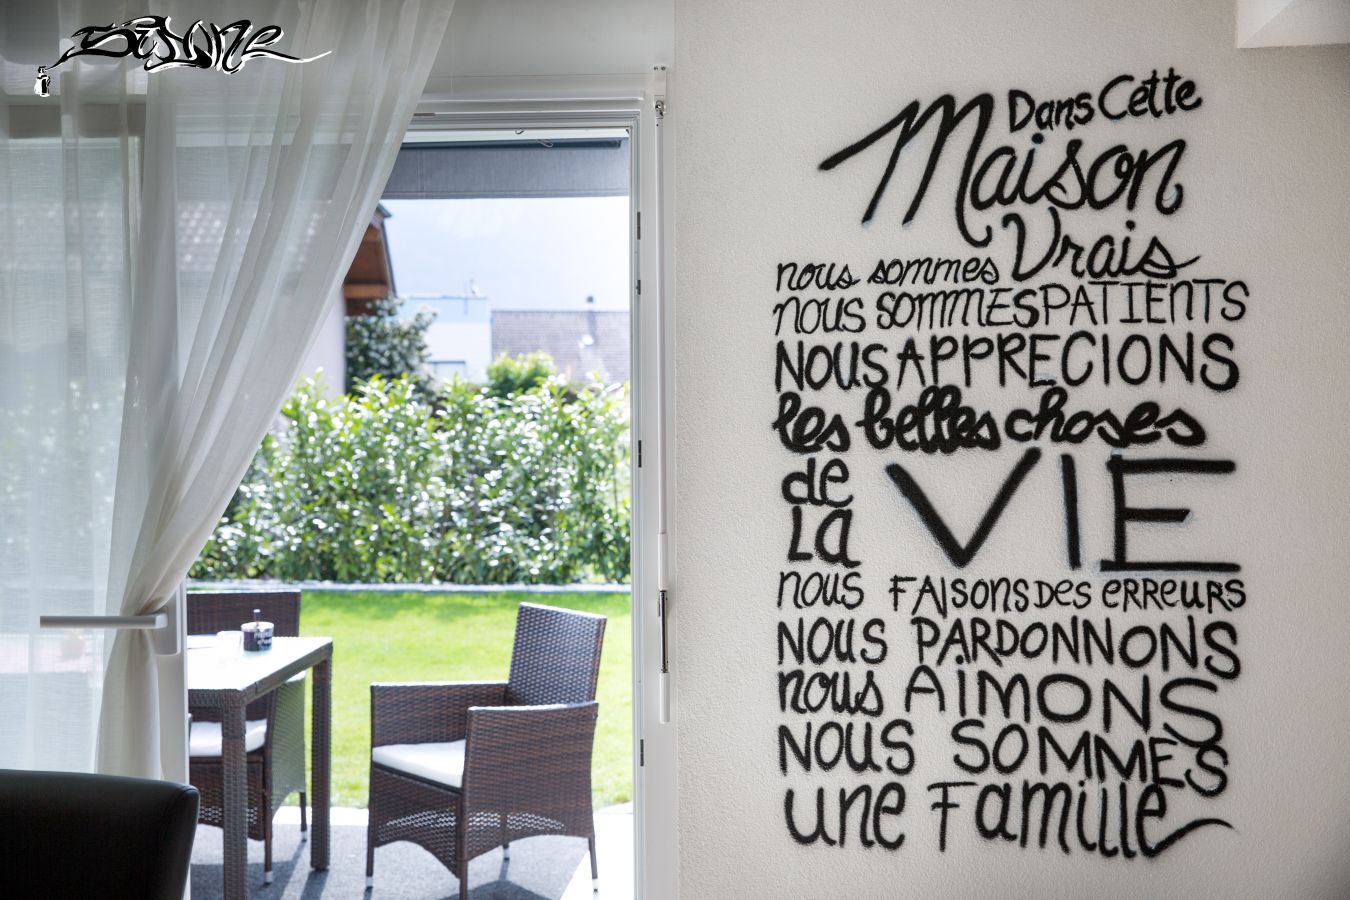 Dans Cette
Maison
nous sommes Vrais
nous sommes PATIENTS
NOUS APPRECIONS
les belles choses
de LA VIE
nous FAiSONS DES erreurs
NOUS PARDONNONS
nous AiMONS
NOUS SOMMES
une Famille